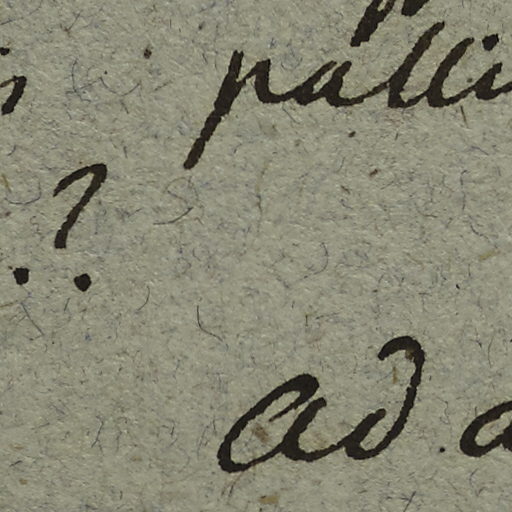 palli
.?
ad a